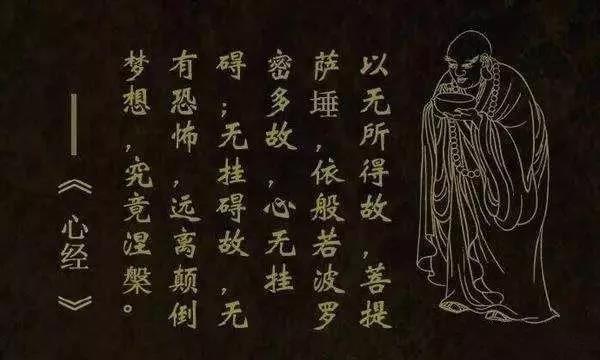 以无所得故，菩提
萨埵，依般若波罗
密多故，心无挂
碍；无挂碍故，无
有恐怖，远离颠倒
梦想，究竟涅槃。
——《心经》